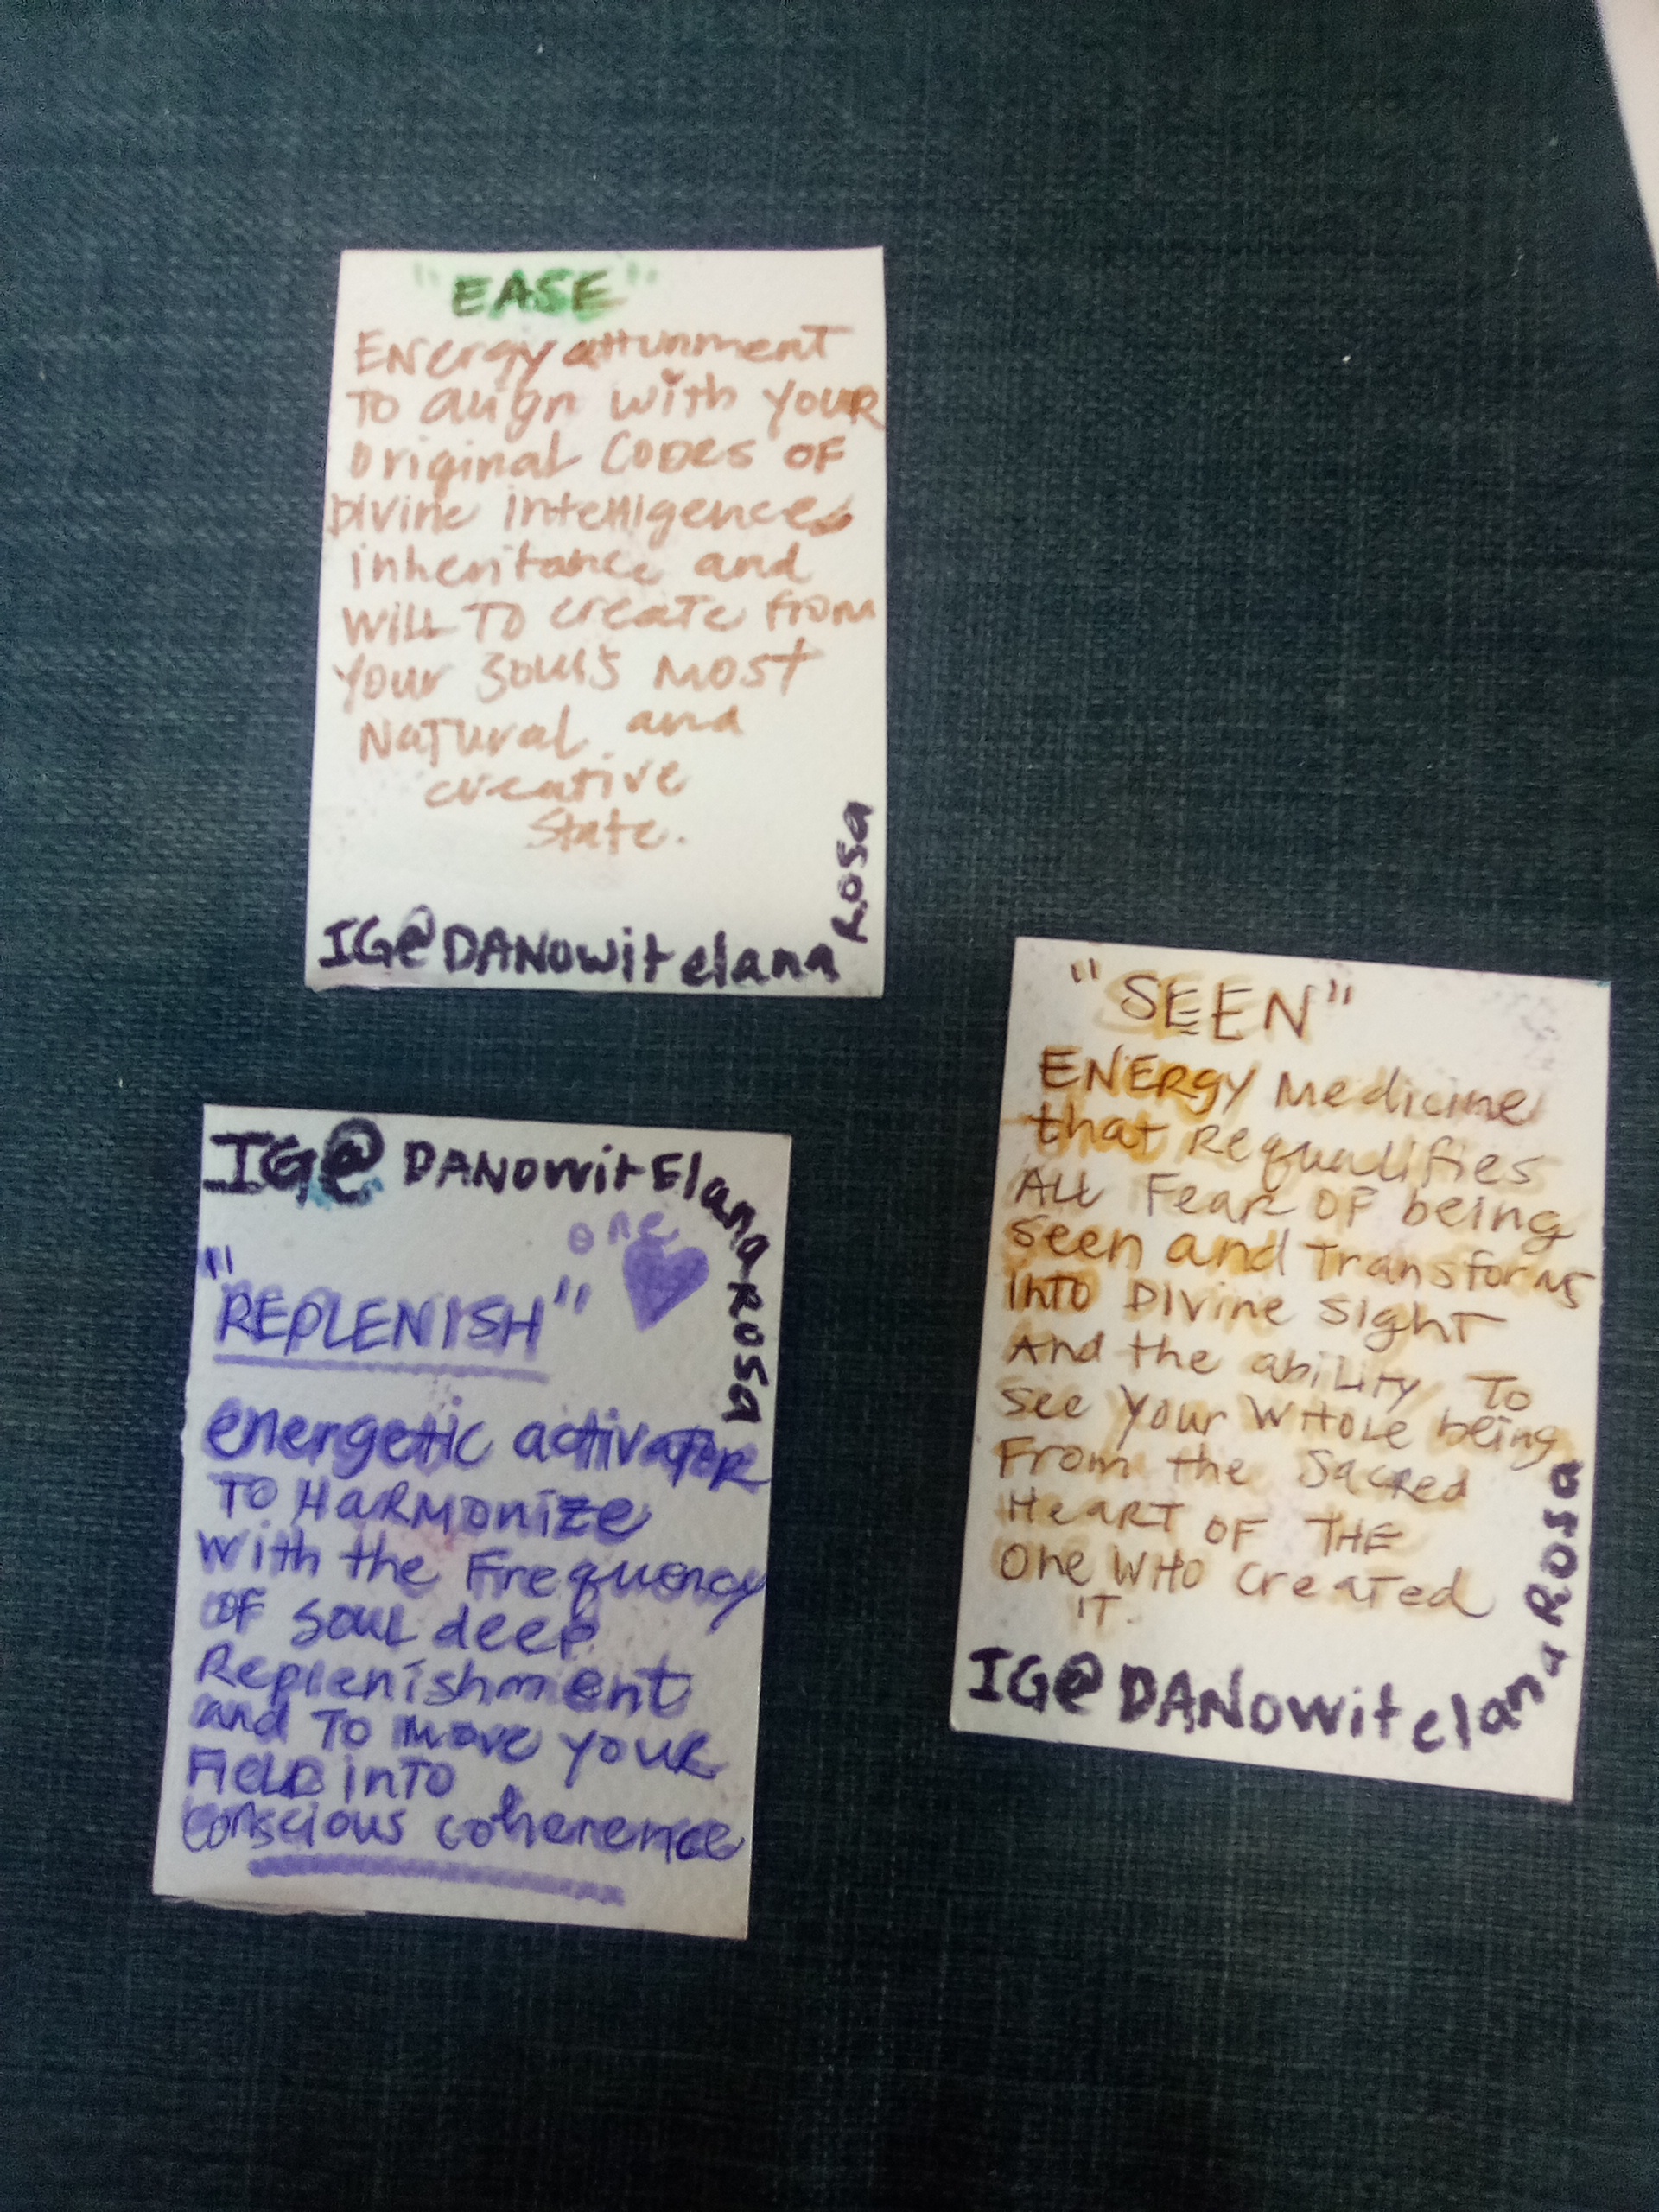 "EASE"
ENergy attunment
TO align with YOUR
Original CODES OF
Divine intelligence
inheritance and
WILL TO create from
your souls MOST
Natural and
creative
State.
IG@DANOwitelana
Rosa
"SEEN"
ENERGY Medicine
that Requalifies
ALL Fear OF being
seen and Transforms
INTO Divine Sight
And the abiLity To
see Your WHOLE being
From the Sacred
HeaRT OF THE
One WHO Created
IT.
IG@DANOwitelana Rosa
IG@DANOwitElana Rosa
one
"REPLENISH"
energetic activatOR
TO HaRMonize
with the Frequency
OF SOUL deep
Replenishment
and TO move YOUR
FieLD inTO
conscious coherence